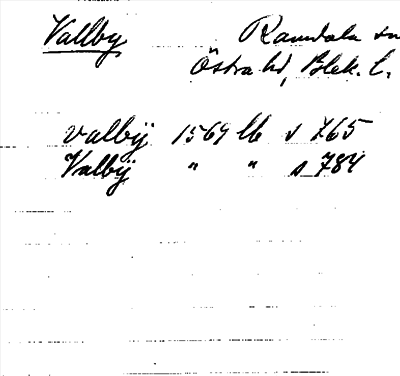 Vallby Ramdala sn
Östra hd, Blek. l.
valbÿ 1569 lb s 765
Valbÿ " " s 784